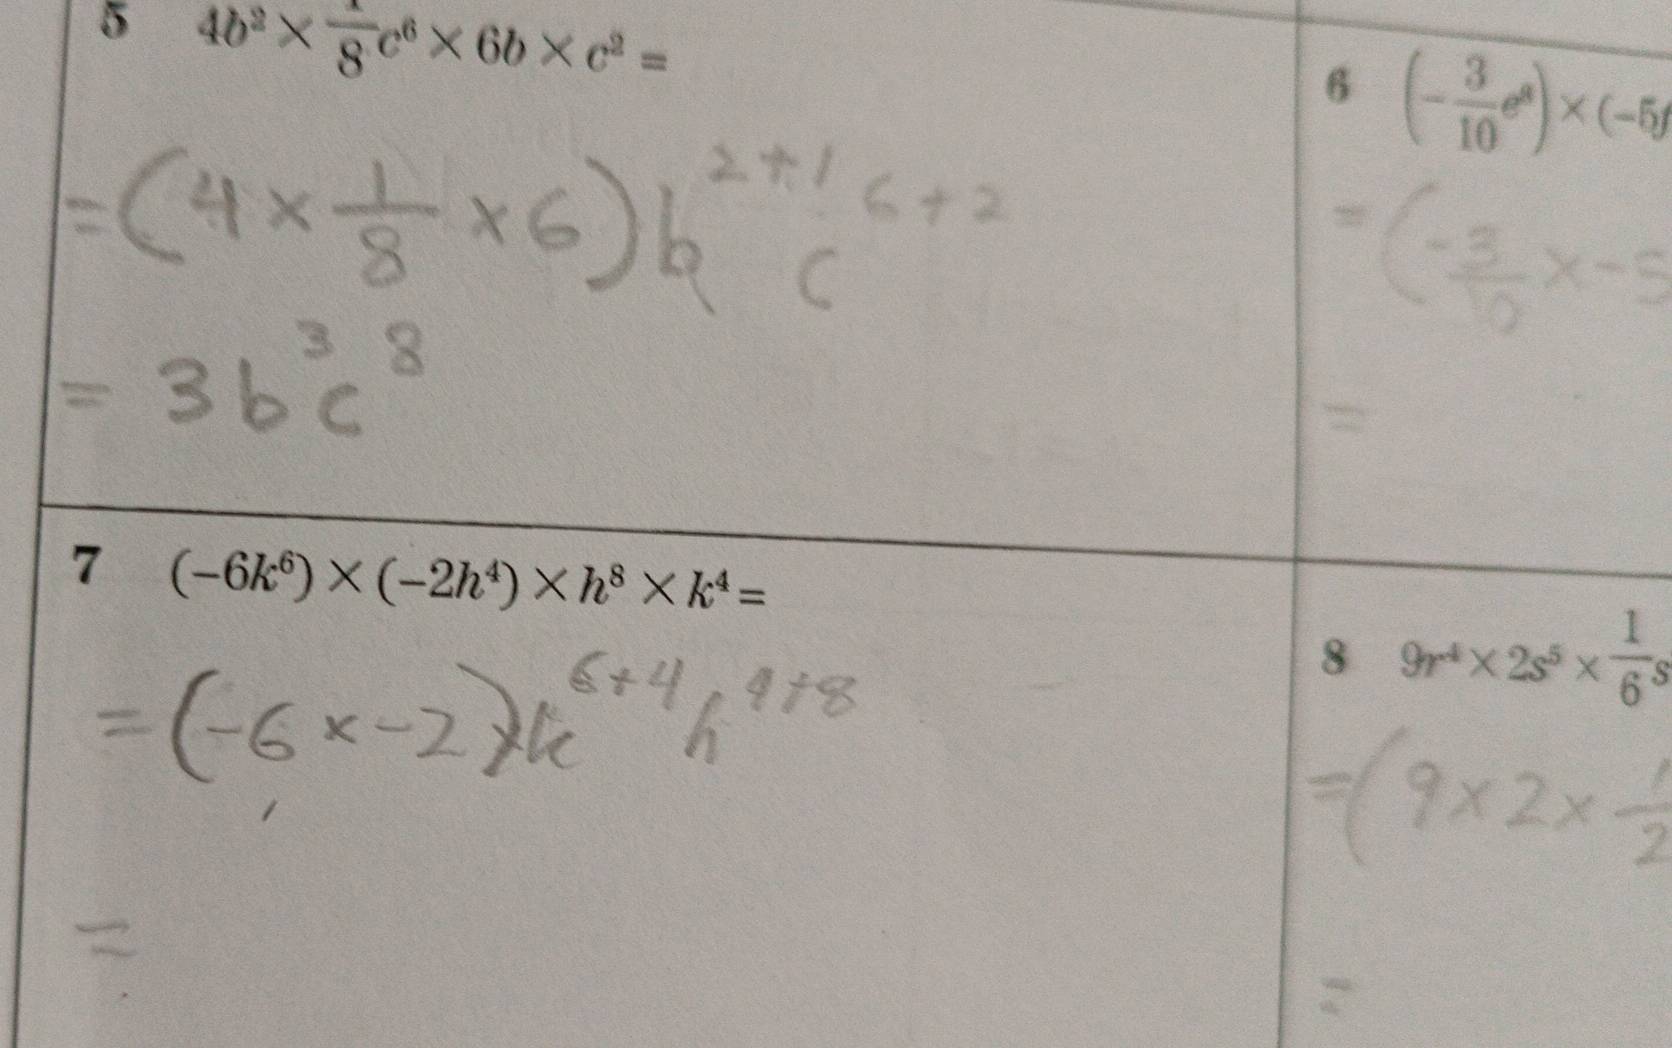 5 4b² × 1/8 c⁶ × 6b × c² =
= (4 × 1/8 × 6) b²⁺¹ c⁶⁺²
= 3b³c⁸
6 (-3/10 e⁸) × (-5f
= (-3/10 × -5
=
7 (-6k⁶) × (-2h⁴) × h⁸ × k⁴ =
= (-6 × -2) k⁶⁺⁴ h⁴⁺⁸
=
8 9r⁴ × 2s⁵ × 1/6 s
= (9 × 2 × 1/2
=